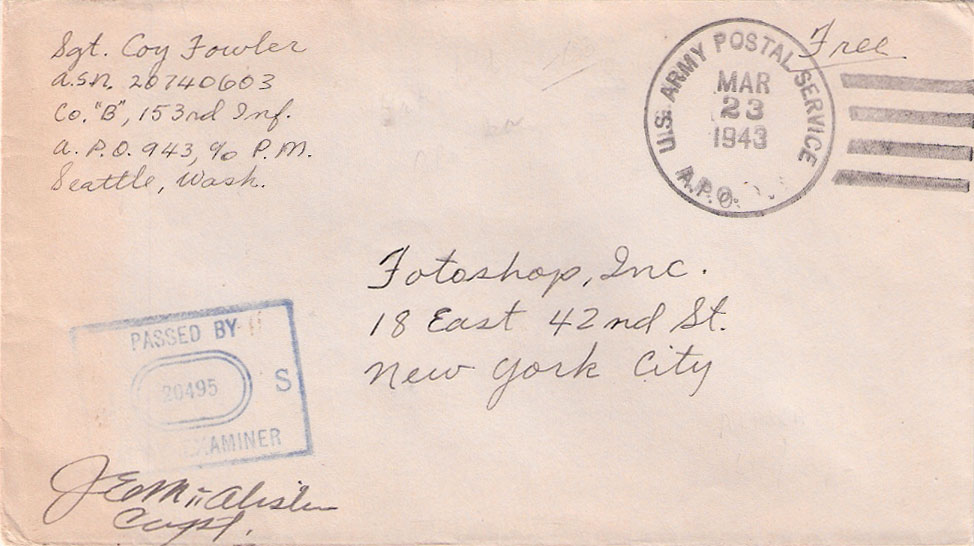 Sgt. Coy Fowler
A.S.N. 20740603
Co. "B", 153rd Inf.
A. P. O. 943, c/o P. M.
Seattle, Wash.
Free
U.S. ARMY POSTAL SERVICE
MAR
23
1943
A.P.O.
Fotoshop, Inc.
18 East 42nd St.
New York City
PASSED BY
20495 S
EXAMINER
Capt.